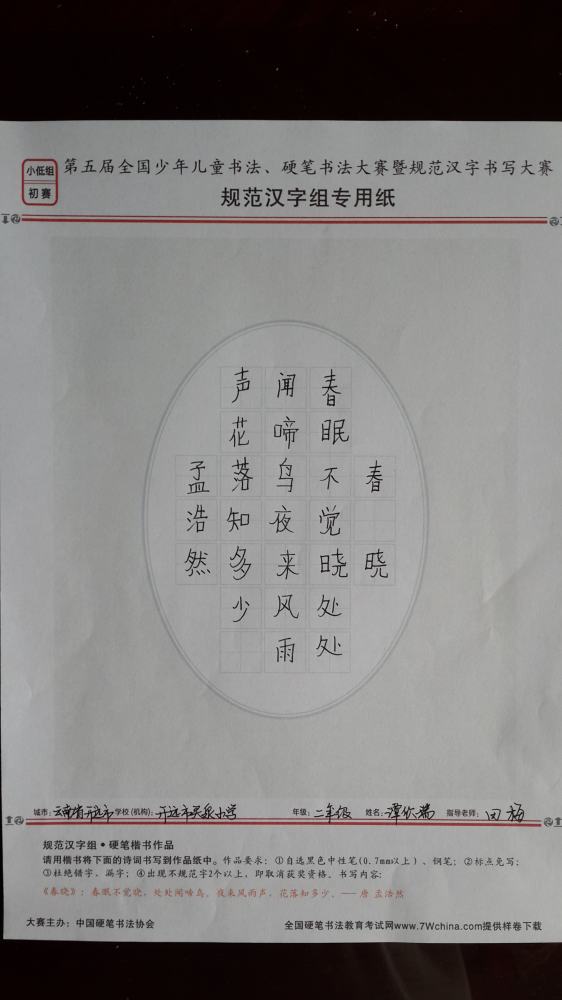 小低组
初赛
第五届全国少年儿童书法、硬笔书法大赛暨规范汉字书写大赛
规范汉字组专用纸
春晓
春眠不觉晓处处
闻啼鸟夜来风雨
声花落知多少
孟浩然
城市：云南省开远市 学校(机构)：开远市灵泉小学 年级：二年级 姓名：谭 瑞 指导老师：田梅
规范汉字组•硬笔楷书作品
请用楷书将下面的诗词书写到作品纸中。作品要求：①自选黑色中性笔(0.7mm以上)、钢笔；②标点免写；
③杜绝错字、漏字；④出现不规范字2个以上，即取消获奖资格。书写内容：
《春晓》：春眠不觉晓，处处闻啼鸟。夜来风雨声，花落知多少。—— 唐 孟浩然
大赛主办：中国硬笔书法协会
全国硬笔书法教育考试网www.7Wchina.com提供样卷下载